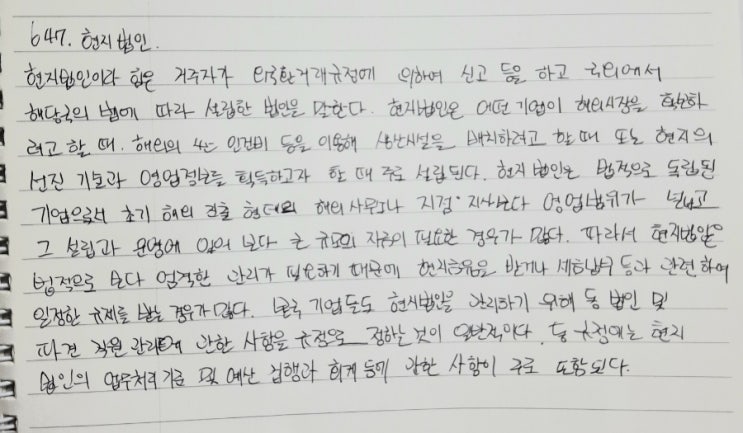 647. 현지법인.
현지법인이라 함은 거주자가 외국환거래규정에 의하여 신고 등을 하고 국외에서
해당국의 법에 따라 설립한 법인을 말한다. 현지법인은 어떤 기업이 해외시장을 확보하
려고 할 때. 해외의 싼 인건비 등을 이용해 생산시설을 배치하려고 할 때 또는 현지의
선진 기술과 영업정보를 획득하고자 할 때 주로 설립된다. 현지 법인은 법적으로 독립된
기업으로서 초기 해외 진출 형태의 해외사무소나 지점·지사보다 영업범위가 넓고
그 설립과 운영에 있어 보다 큰 규모의 자금이 필요한 경우가 많다. 따라서 현지법인은
법적으로 보다 엄격한 관리가 필요하기 때문에 현지금융을 받거나 세금납부 등과 관련하여
일정한 규제를 받는 경우가 많다. 본국 기업들도 현지법인을 관리하기 위해 동 법인 및
파견 직원 관리에 관한 사항을 규정으로 정하는 것이 일반적이다. 동 규정에는 현지
법인의 업무처리기준 및 예산 집행과 회계 등에 관한 사항이 주로 포함된다.